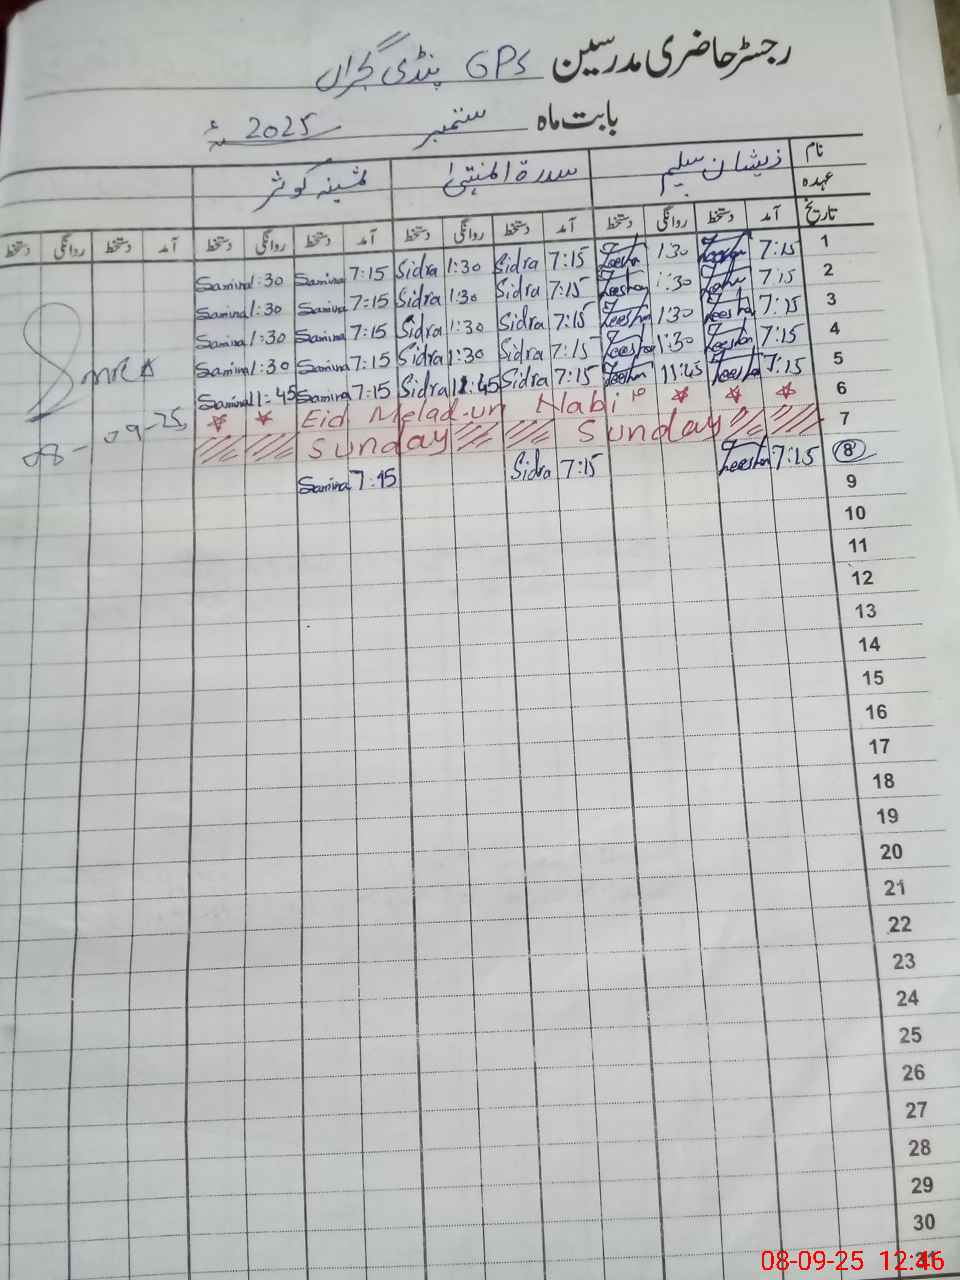 رجسٹر حاضری مدرسین GPS پنڈی گجراں
بابت ماہ ستمبر 2025ء
نام ذیشان سلیم سدرۃ المنتہیٰ ثمینہ کوثر
عہدہ
تاریخ آمد دستخط روانگی دستخط آمد دستخط روانگی دستخط آمد دستخط روانگی دستخط آمد دستخط روانگی دستخط
1 7:15 Zeeshan 1:30 Zeeshan 7:15 Sidra 1:30 Sidra 7:15 Samina 1:30 Samina
2 7:15 Zeeshan 1:30 Zeeshan 7:15 Sidra 1:30 Sidra 7:15 Samina 1:30 Samina
3 7:15 Zeeshan 1:30 Zeeshan 7:15 Sidra 1:30 Sidra 7:15 Samina 1:30 Samina
4 7:15 Zeeshan 1:30 Zeeshan 7:15 Sidra 1:30 Sidra 7:15 Samina 1:30 Samina
5 7:15 Zeeshan 11:45 Zeeshan 7:15 Sidra 11:45 Sidra 7:15 Samina 1:45 Samina
6 Eid Melad-un Nabi
7 Sunday Sunday
8 7:15 Zeeshan 7:15 Sidra 7:15 Samina
08-09-25
9
10
11
12
13
14
15
16
17
18
19
20
21
22
23
24
25
26
27
28
29
30
31
08-09-25 12:46